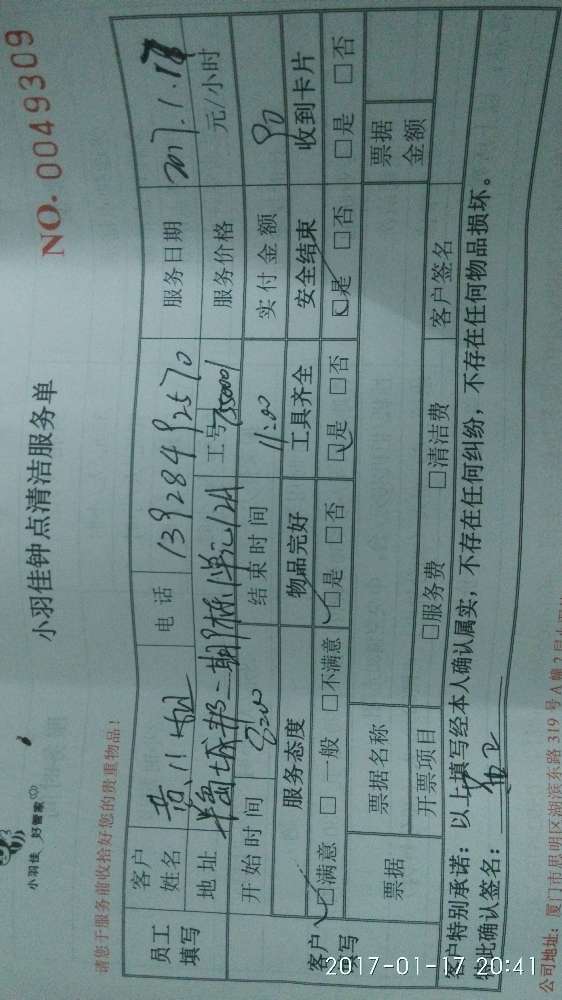 小羽佳 好管家
小羽佳钟点清洁服务单
NO. 0049309
请您于服务前收拾好您的贵重物品！
员工填写
客户姓名 电话 13928492570 服务日期 2017.1.18
地址 工号 服务价格 元/小时
开始时间 8:00 结束时间 11:00 实付金额 90
客户填写
服务态度 物品完好 工具齐全 安全结束 收到卡片
☑满意 □一般 □不满意 ☑是 □否 ☑是 □否 ☑是 □否 □是 □否
票据 票据名称 票据金额
开票项目 □服务费 □清洁费 客户签名
客户特别承诺：以上填写经本人确认属实，不存在任何纠纷，不存在任何物品损坏。
特此确认签名：
公司地址：厦门市思明区湖滨东路319号A幢2层
2017-01-17 20:41